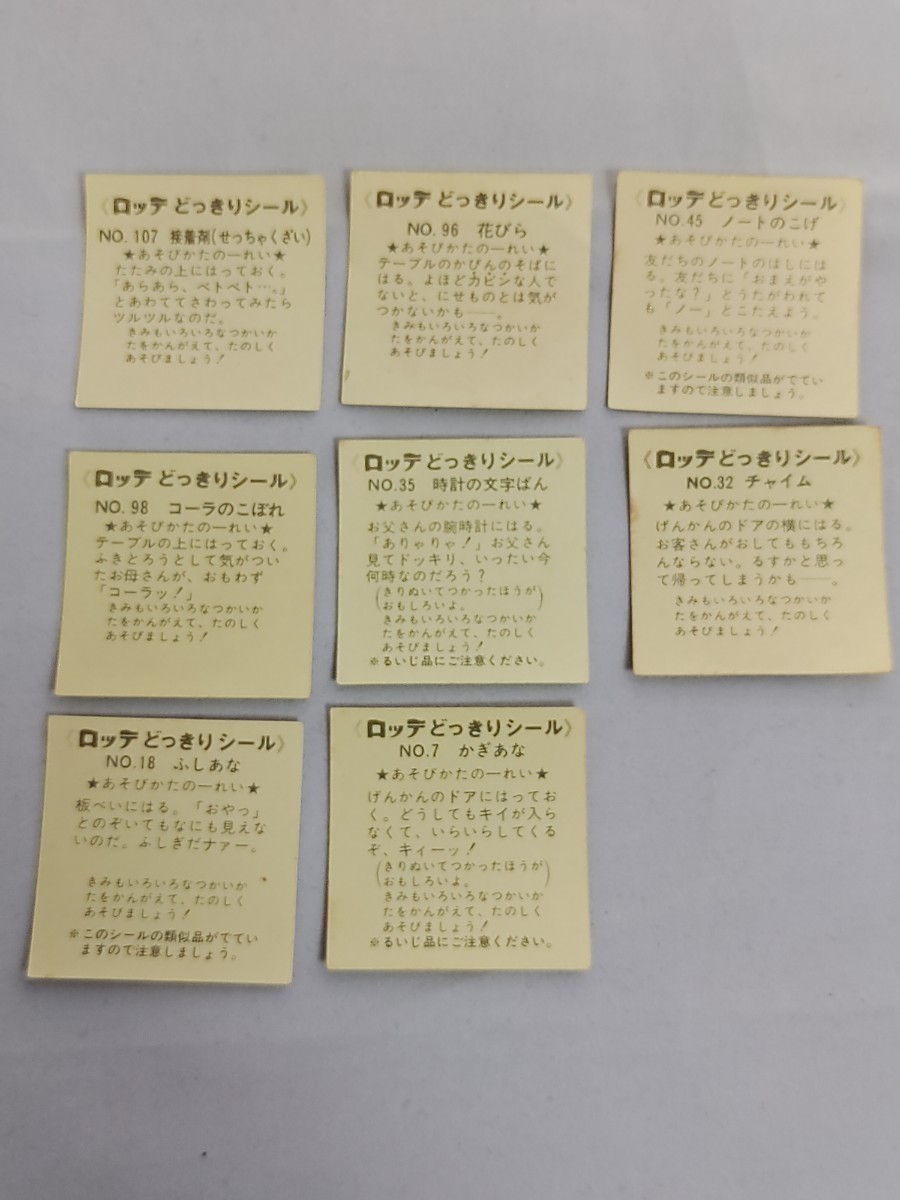 《ロッテ どっきりシール》
NO. 107 接着剤(せっちゃくざい)
★あそびかたの一れい★
たたみの上にはっておく。
「あらあら、ベトベト…。」
とあわててさわってみたら
ツルツルなのだ。
きみもいろいろなつかいか
たをかんがえて、たのしく
あそびましょう!
《ロッテ どっきりシール》
NO. 96 花びら
★あそびかたの一れい★
テーブルのかびんのそばに
はる。よほどカビンな人で
ないと、にせものとは気が
つかないかも——。
きみもいろいろなつかいか
たをかんがえて、たのしく
あそびましょう!
《ロッテ どっきりシール》
NO. 45 ノートのこげ
★あそびかたの一れい★
友だちのノートのはしには
る。友だちに「おまえがや
ったな?」とうたがわれて
も「ノー」とこたえよう。
きみもいろいろなつかいか
たをかんがえて、たのしく
あそびましょう!
※このシールの類似品がでてい
ますので注意しましょう。
《ロッテ どっきりシール》
NO. 98 コーラのこぼれ
★あそびかたの一れい★
テーブルの上にはっておく。
ふきとろうとして気がつい
たお母さんが、おもわず
「コーラッ!」
きみもいろいろなつかいか
たをかんがえて、たのしく
あそびましょう!
《ロッテ どっきりシール》
NO. 35 時計の文字ばん
★あそびかたの一れい★
お父さんの腕時計にはる。
「ありゃりゃ!」お父さん
見てドッキリ、いったい今
何時なのだろう?
(きりぬいてつかったほうが
おもしろいよ。)
きみもいろいろなつかいか
たをかんがえて、たのしく
あそびましょう!
※るいじ品にご注意ください。
《ロッテ どっきりシール》
NO.32 チャイム
★あそびかたの一れい★
げんかんのドアの横にはる。
お客さんがおしてももちろ
んならない。るすかと思っ
て帰ってしまうかも——。
きみもいろいろなつかいか
たをかんがえて、たのしく
あそびましょう!
《ロッテ どっきりシール》
NO.18 ふしあな
★あそびかたの一れい★
板べいにはる。「おやっ」
とのぞいてもなにも見えな
いのだ。ふしぎだナァー。
きみもいろいろなつかいか
たをかんがえて、たのしく
あそびましょう!
※このシールの類似品がでてい
ますので注意しましょう。
《ロッテ どっきりシール》
NO.7 かぎあな
★あそびかたの一れい★
げんかんのドアにはってお
く。どうしてもキイが入ら
なくて、いらいらしてくる
ぞ、キィーッ!
(きりぬいてつかったほうが
おもしろいよ。)
きみもいろいろなつかいか
たをかんがえて、たのしく
あそびましょう!
※るいじ品にご注意ください。